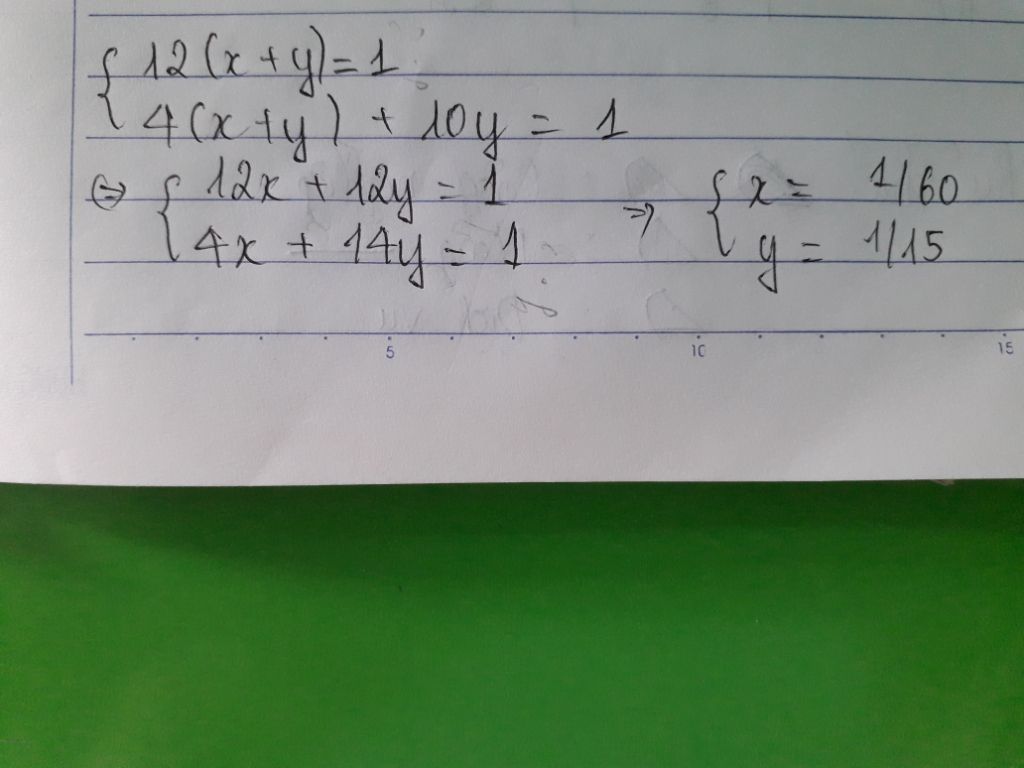 { 12(x+y)=1
4(x+y) + 10y = 1
⇔ { 12x + 12y = 1
4x + 14y = 1
⇒ { x = 1/60
y = 1/15
5 10 15